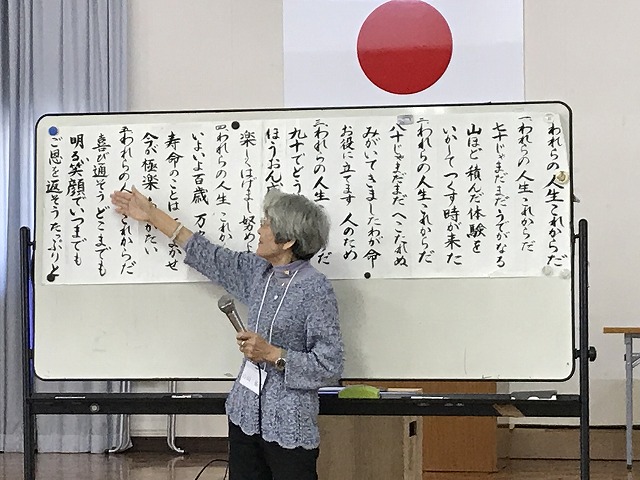 われらの人生これからだ
一、われらの人生これからだ
七十じゃまだまだうでがなる
山ほど積んだ体験を
いかしてつくす時が来た
二、われらの人生これからだ
八十じゃまだまだへこたれぬ
みがいてきましたわが命
お役に立てます人のため
三、われらの人生 だ
九十でどう
ほうおん
楽しくはげまし努め
四、われらの人生これか
いよいよ百歳 万
寿命のことは かせ
今が極楽 がたい
五、われらの人 これからだ
喜び通そうどこまでも
明るい笑顔でいつまでも
ご恩を返そうたっぷりと